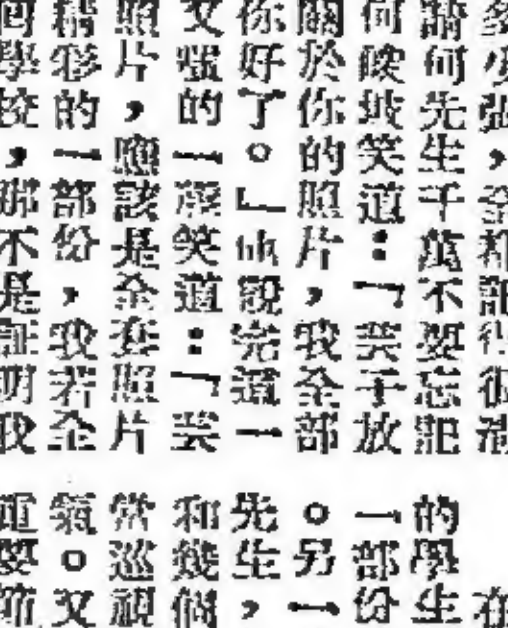 張，全都
請何先生千萬不要忘記
何 坡笑道：「芸子放
關於你的照片，我全部
你好了。」 說完 一
又 的一 笑道：「芸
照片，應該是全套照片
精彩的一部份，我若全
學校， 不是証明我
在
的學生
一部份
。另一
先生，
和幾個
常巡視
氣。又
要節